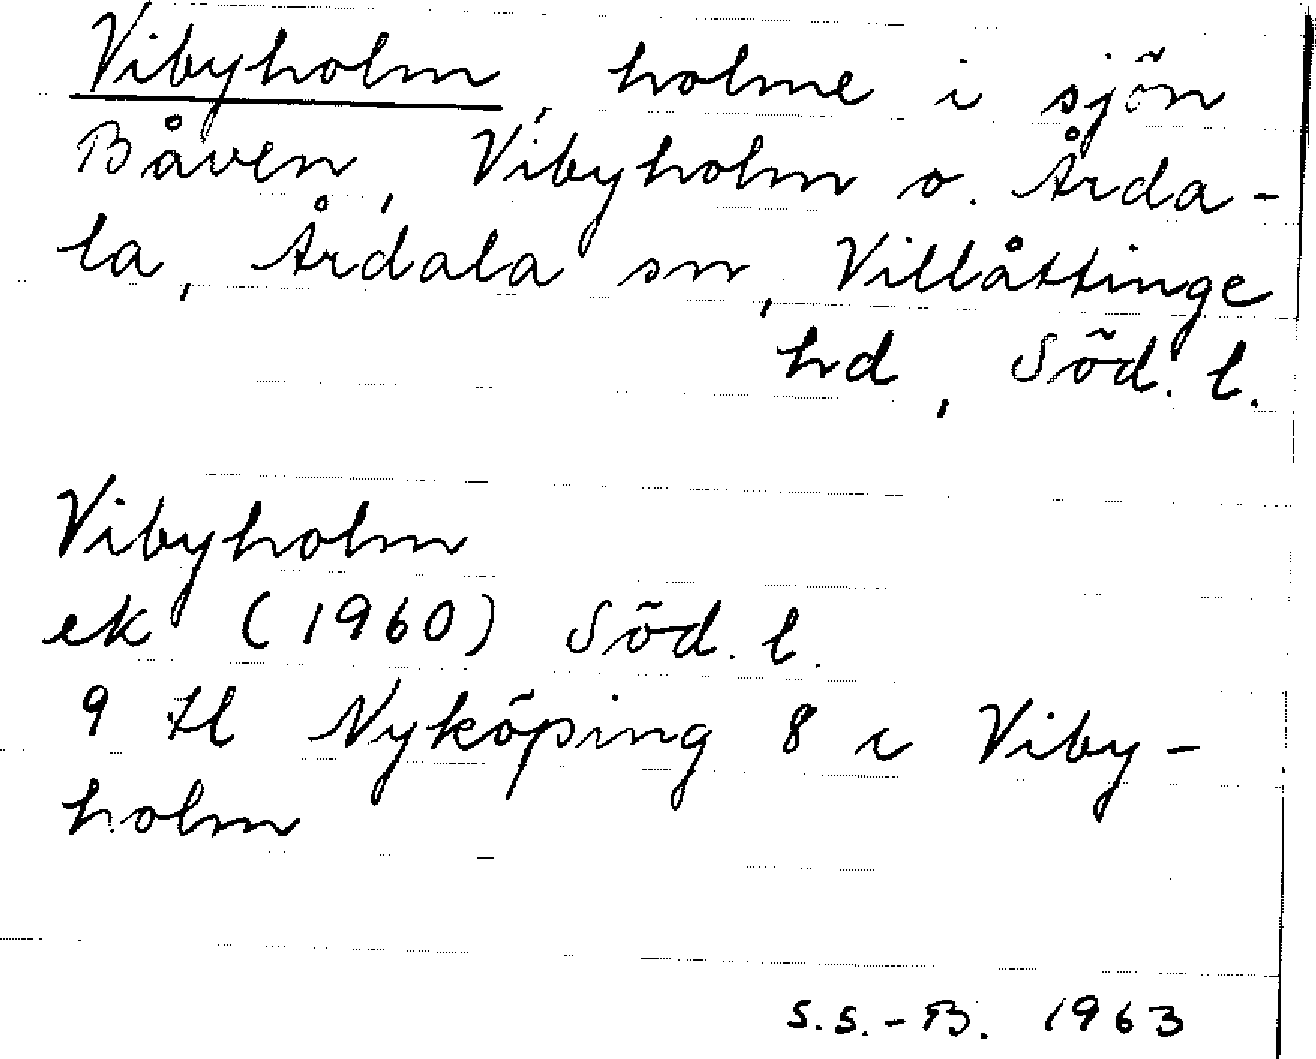 Vibyholm, holme i sjön
Båven, Vibyholm o. Årda-
la, Årdala sn, Villåttinge
hd, Söd. l.
Vibyholm
ek (1960) Söd. l.
9 tl Nyköping 8 i Viby-
holm
S.S.-B. 1963